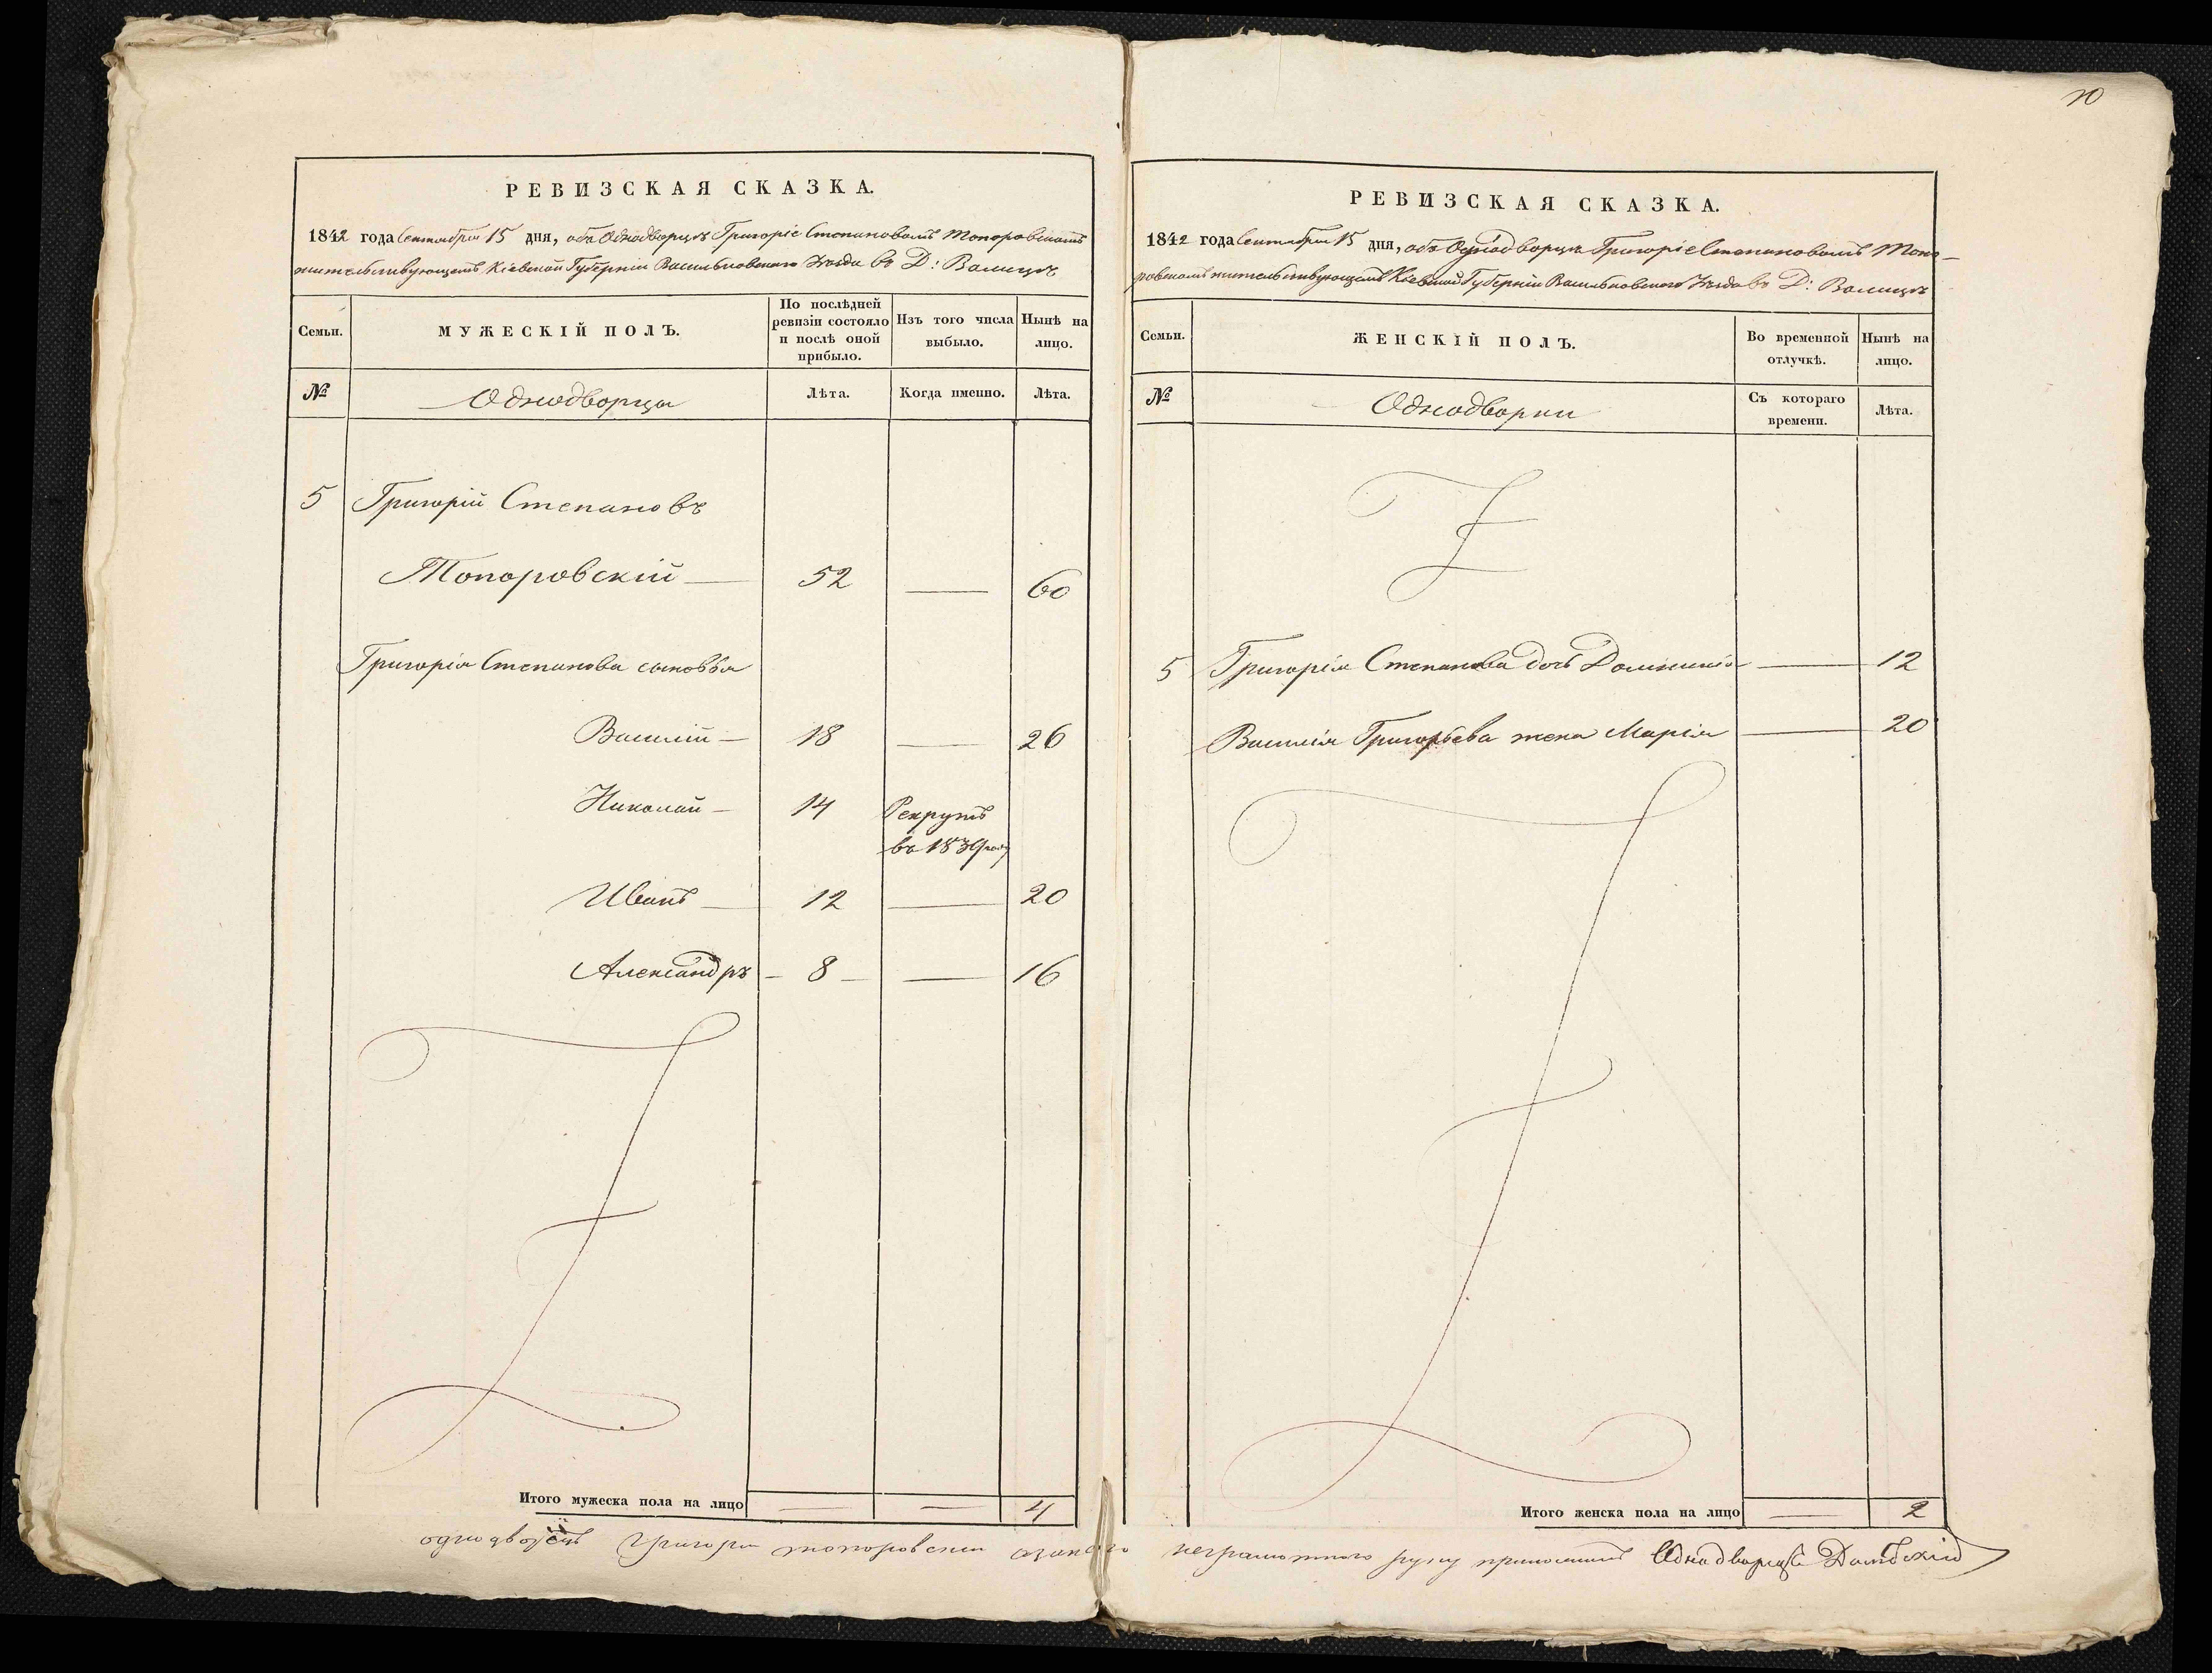 10
РЕВИЗСКАЯ СКАЗКА.
1842 года Сентября 15 дня, объ Однодворцѣ Григоріе Степановомъ Топоровскомъ
жительствующемъ Кіевской Губерніи Васильковскаго Уѣзда въ Д: Волицѣ
Семьи.
МУЖЕСКІЙ ПОЛЪ.
По послѣдней ревизіи состояло и послѣ оной прибыло.
Изъ того числа выбыло.
Нынѣ на лицо.
№
Однодворцы
Лѣта.
Когда именно.
Лѣта.
5 Григорій Степановъ
Топоровскій — 52 — 60
Григорія Степанова сыновья
Василій — 18 — 26
Николай — 14 Рекрутъ
въ 1839 году
Иванъ — 12 — 20
Александръ — 8 — — 16
Итого мужеска пола на лицо — — 4
РЕВИЗСКАЯ СКАЗКА.
1842 года Сентября 15 дня, объ Однодворцѣ Григоріе Степановомъ Топо-
ровскомъ жительствующемъ Кіевской Губерніи Васильковскаго Уѣзда въ Д: Волицѣ
Семьи.
ЖЕНСКІЙ ПОЛЪ.
Во временной отлучкѣ.
Нынѣ на лицо.
№
Однодворки
Съ котораго времени.
Лѣта.
5 Григорія Степанова дочь Доминикія — 12
Василія Григорьева жена Марія — 20
Итого женска пола на лицо — 2
однодворецъ Григори топоровски неграмотного руку Однодворецъ Домбскій